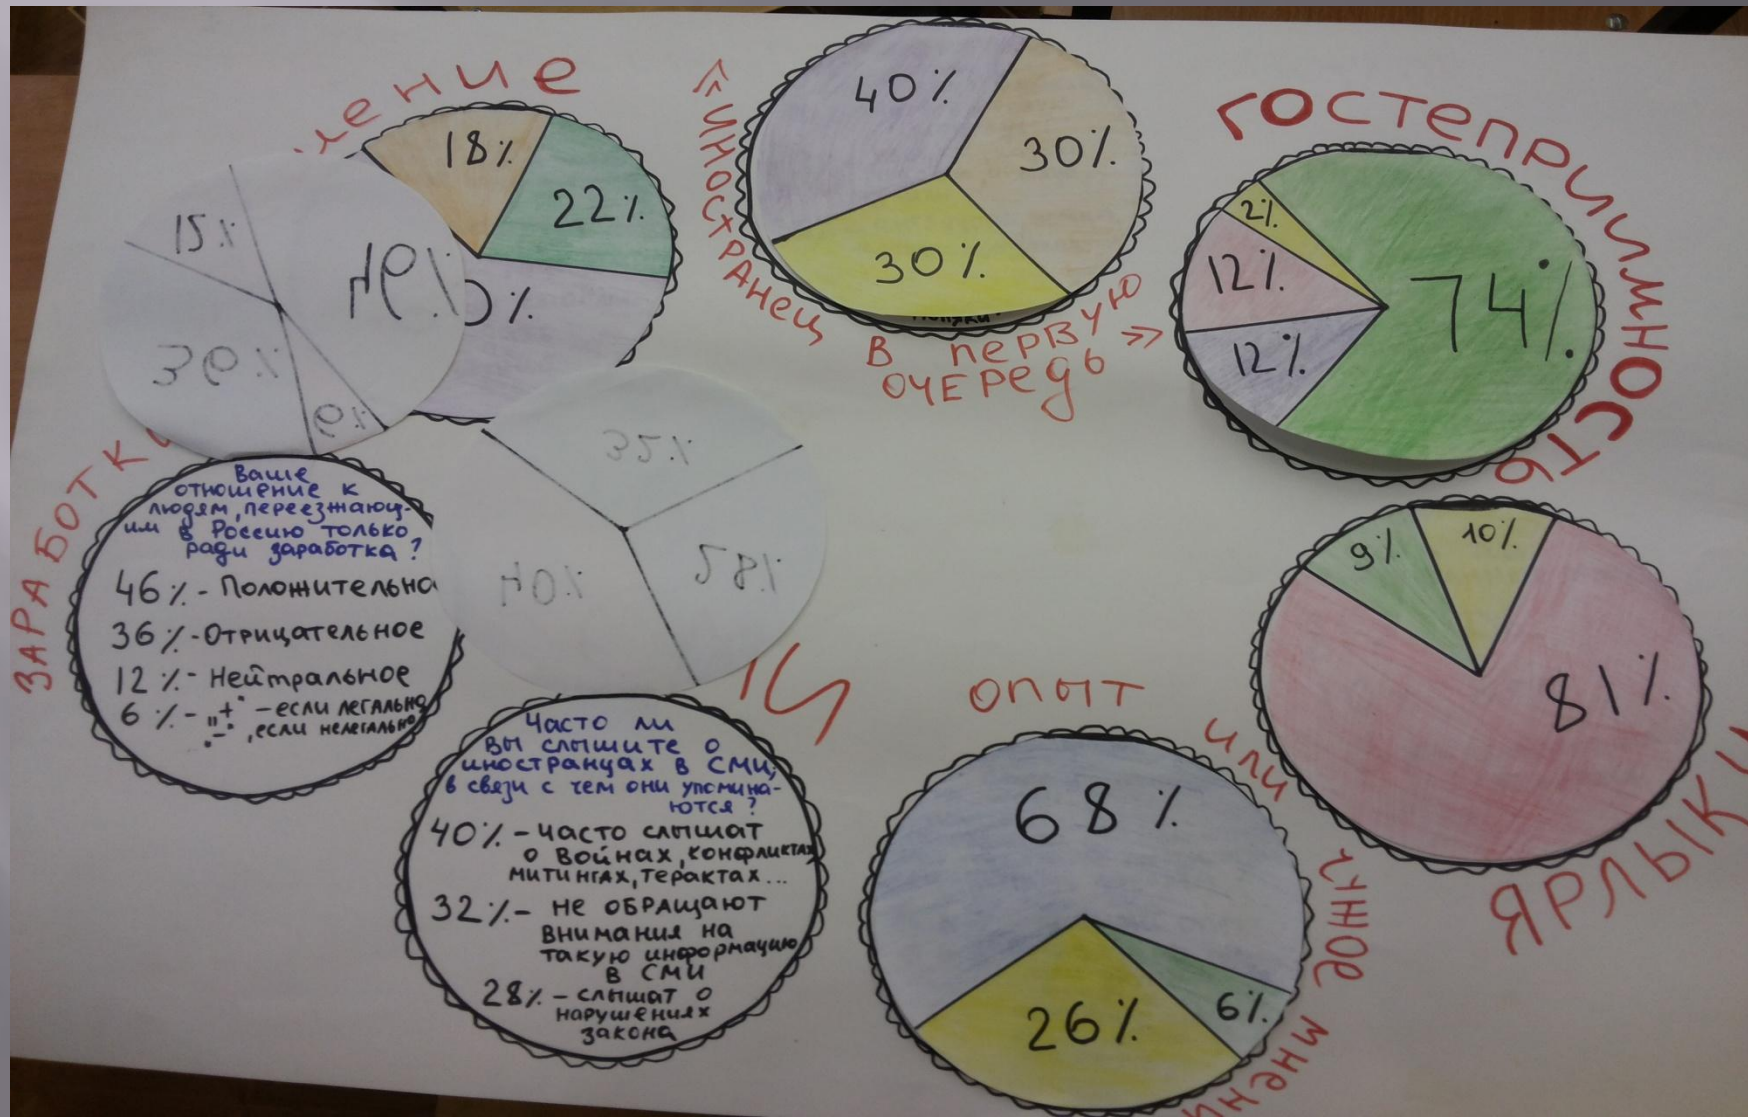 18%
22%
«ИНОСТРАНЕЦ
В ПЕРВУЮ
ОЧЕРЕДЬ»
40%
30%
30%
ГОСТЕПРИИМНОСТЬ
2%
12%
12%
74%
36%
6%
ЗАРАБОТКИ
Ваше
отношение к
людям, переезжающ-
им в Россию только
ради заработка?
46% - Положительно
36% - Отрицательное
12% - Нейтральное
6% - „+" - если легально
„-", если нелегально
32%
28%
40%
Часто ли
вы слышите о
иностранцах в СМИ,
в связи с чем они упомина-
ются?
40% - часто слышат
о войнах, конфликтах,
митингах, терактах...
32% - не обращают
внимания на
такую информацию
в СМИ
28% - слышат о
нарушениях
закона
ОПЫТ
ИЛИ
МНЕНИ
68%
26%
6%
9%
10%
81%
ЯРЛЫКИ